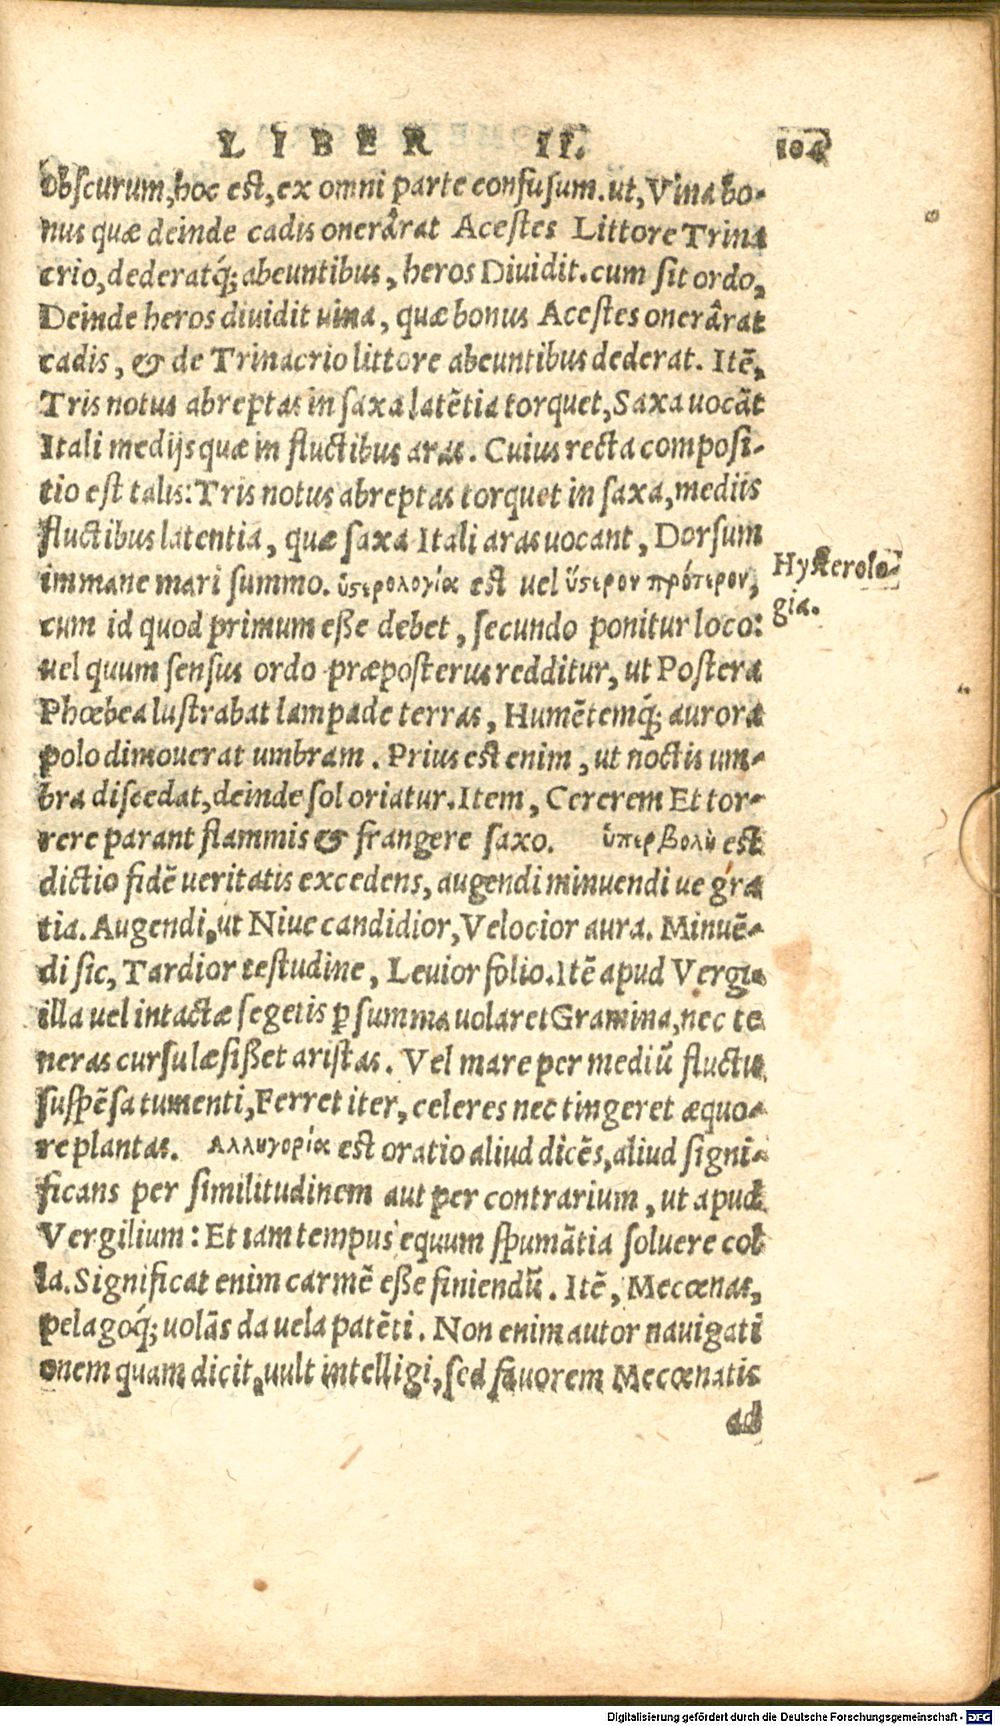 LIBER II. 104
obscurum, hoc est, ex omni parte confusum. ut, Vina bo-
nus quæ deinde cadis onerârat Acestes Littore Trina
crio, dederatq́; abeuntibus, heros Diuidit. cum sit ordo,
Deinde heros diuidit uina, quæ bonus Acestes onerârat
cadis, & de Trinacrio littore abeuntibus dederat. Itē,
Tris notus abreptas in saxa latētia torquet, Saxa uocāt
Itali medijs quæ in fluctibus aras. Cuius recta composi-
tio est talis: Tris notus abreptas torquet in saxa, mediis
fluctibus latentia, quæ saxa Itali aras uocant, Dorsum
immane mari summo. ὑστερολογία est uel ὕστερον πρότερον,
Hysterolo-
gia.
cum id quod primum esse debet, secundo ponitur loco:
uel quum sensus ordo præposterus redditur, ut Postera
Phœbea lustrabat lampade terras, Humētemq́; aurora
polo dimouerat umbram. Prius est enim, ut noctis um-
bra discedat, deinde sol oriatur. Item, Cererem Et tor-
rere parant flammis & frangere saxo. ὑπερβολὴ est
dictio fidē ueritatis excedens, augendi minuendi ue gra
tia. Augendi, ut Niue candidior, Velocior aura. Minuē-
di sic, Tardior testudine, Leuior folio. Itē apud Vergi.
illa uel intactæ segetis ꝑ summa uolaret Gramina, nec te
neras cursu læsisset aristas. Vel mare per mediū fluctu
suspēsa tumenti, Ferret iter, celeres nec tingeret æquo-
re plantas. Αλληγορία est oratio aliud dicēs, aliud signi-
ficans per similitudinem aut per contrarium, ut apud
Vergilium: Et iam tempus equum spumātia soluere col
la. Significat enim carmē esse finiendū. Itē, Mecœnas,
pelagoq́; uolās da uela patēti. Non enim autor nauigati
onem quam dicit, uult intelligi, sed fauorem Mecœnatis
ad
Digitalisierung gefördert durch die Deutsche Forschungsgemeinschaft - DFG